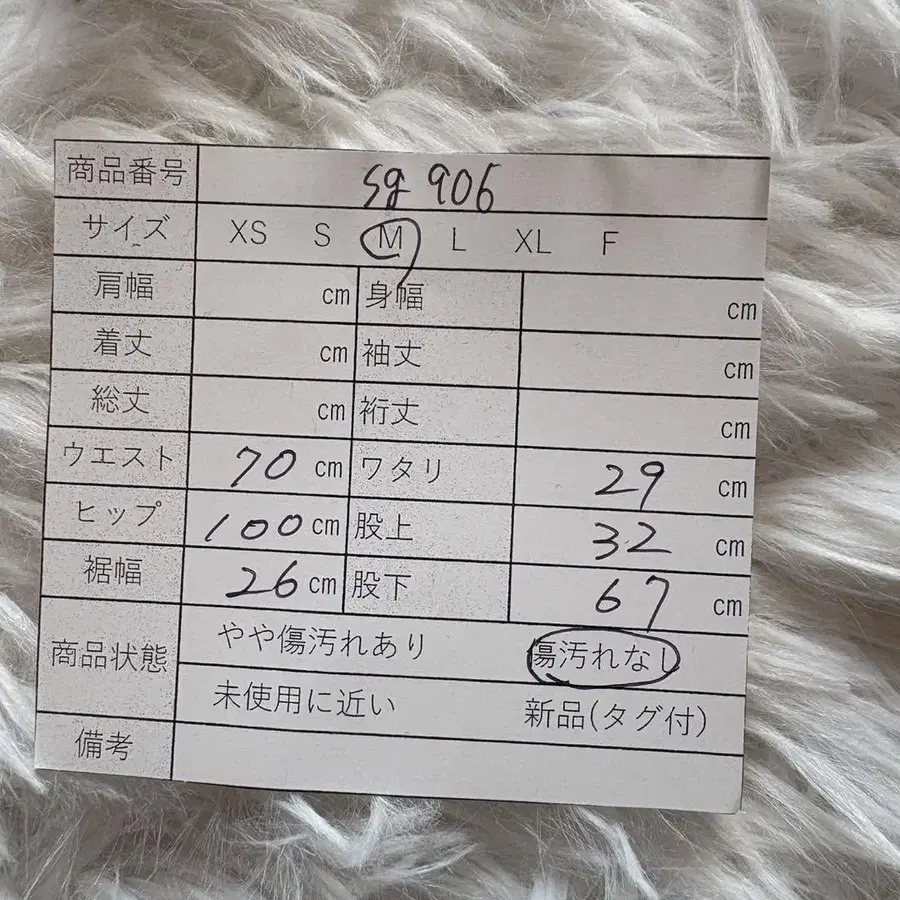 商品番号 sg 906
サイズ XS S M L XL F
肩幅 cm 身幅 cm
着丈 cm 袖丈 cm
総丈 cm 裄丈 cm
ウエスト 70 cm ワタリ 29 cm
ヒップ 100 cm 股上 32 cm
裾幅 26 cm 股下 67 cm
商品状態 やや傷汚れあり 傷汚れなし
未使用に近い 新品(タグ付)
備考